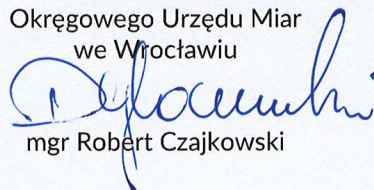 Okręgowego Urzędu Miar
we Wrocławiu
mgr Robert Czajkowski